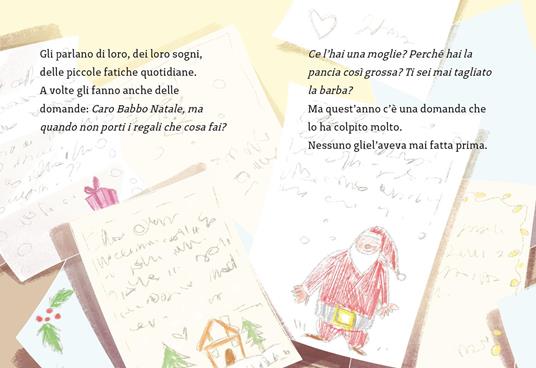 Gli parlano di loro, dei loro sogni,
delle piccole fatiche quotidiane.
A volte gli fanno anche delle
domande: Caro Babbo Natale, ma
quando non porti i regali che cosa fai?
Ce l'hai una moglie? Perché hai la
pancia così grossa? Ti sei mai tagliato
la barba?
Ma quest'anno c'è una domanda che
lo ha colpito molto.
Nessuno gliel'aveva mai fatta prima.